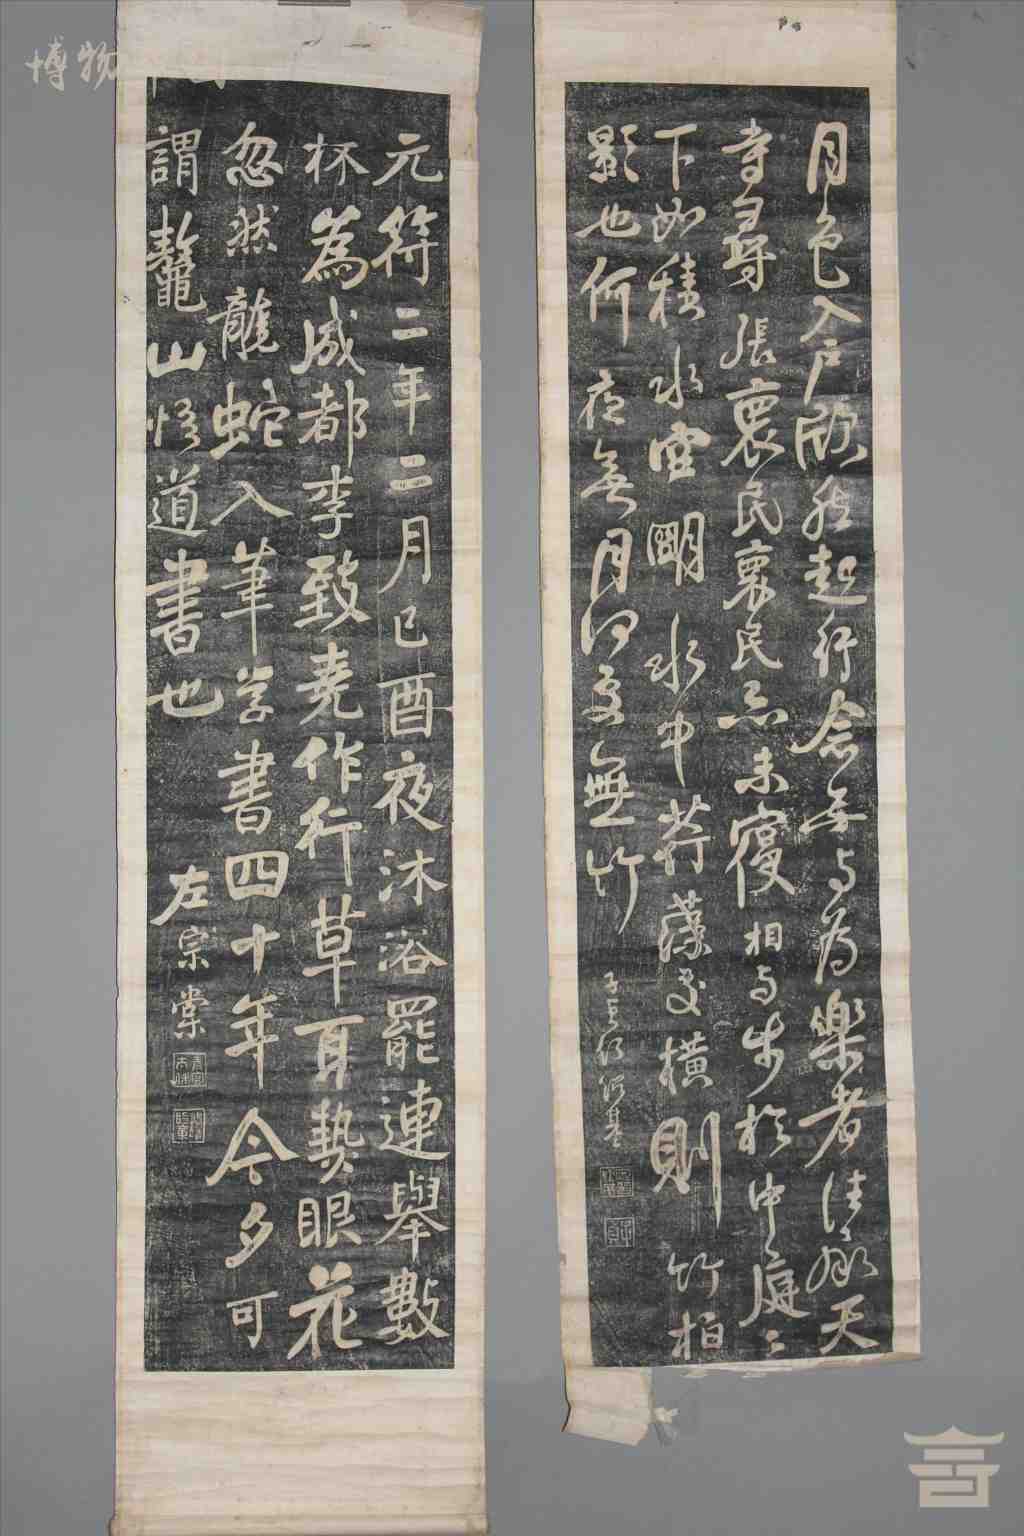 月色入戶欣然起行念無与為樂者往承天
寺尋張懷民懷民亦未寢相与步於中庭〻
下如積水空明水中荇藻交橫則竹柏
影也何夜無月何處無竹
子貞 何紹基
元符二年二月己酉夜沐浴罷連舉數
杯為成都李致堯作行草耳熱眼花
忽然龍蛇入筆学書四十年今夕可
謂鼇山悟道書也
左宗棠
博物